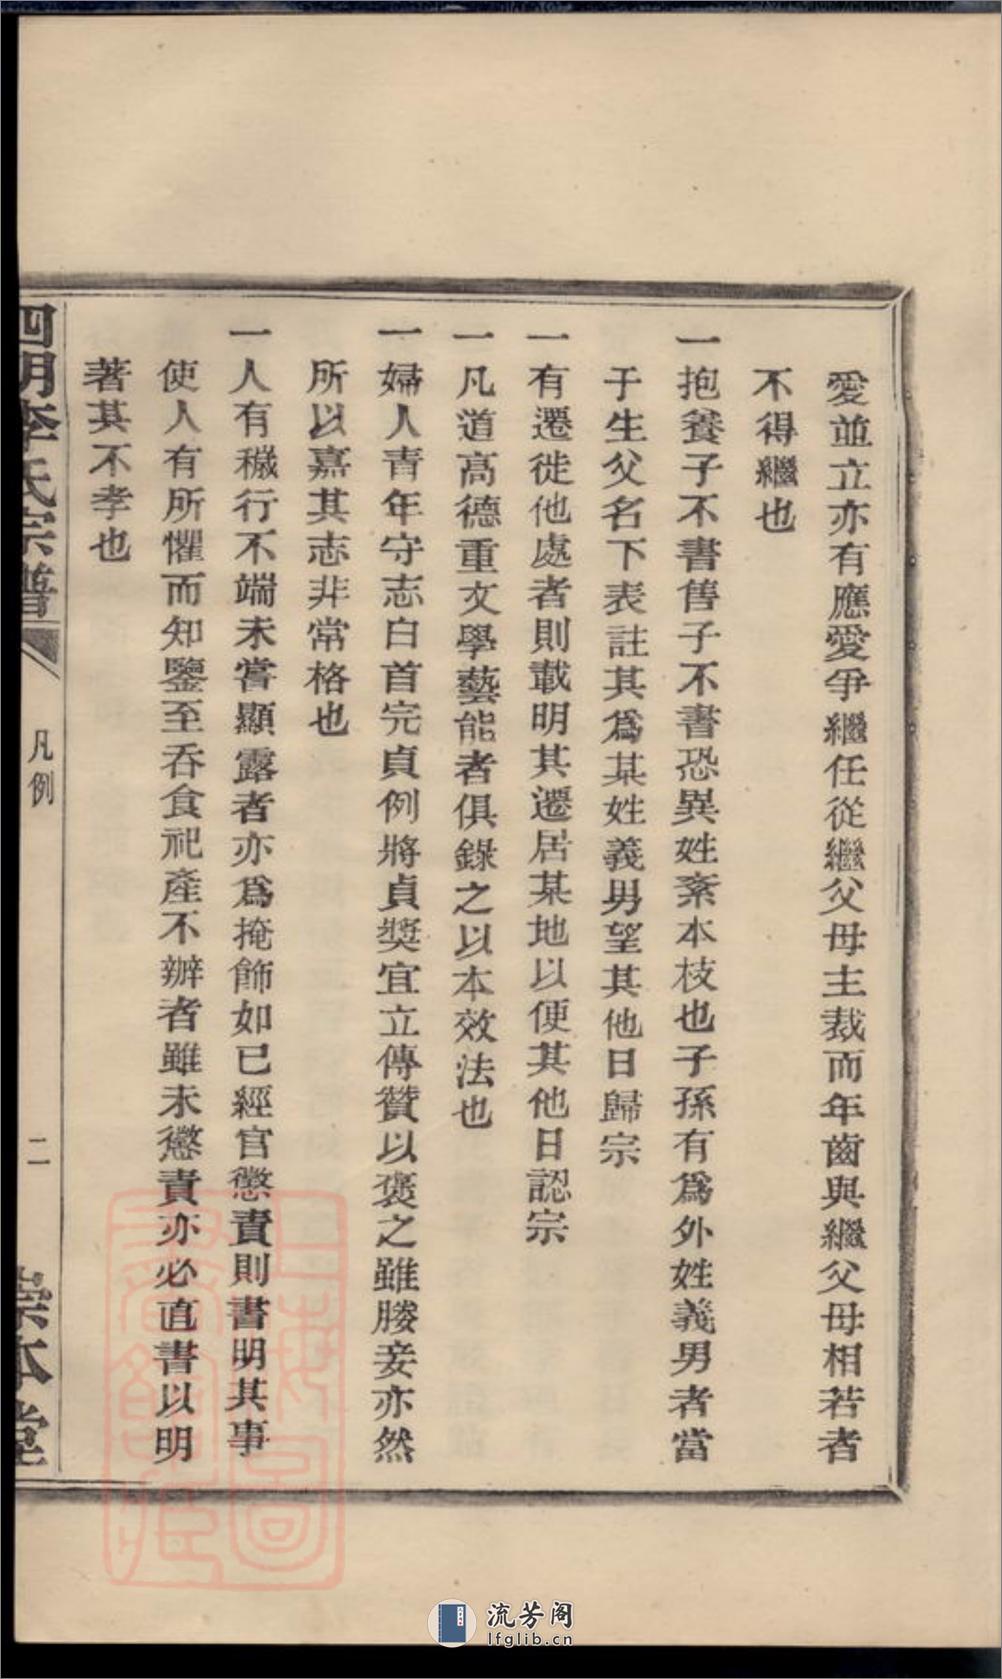 愛並立亦有應愛爭繼任從繼父母主裁而年齒與繼父母相若者
不得繼也
一抱養子不書售子不書恐異姓紊本枝也子孫有爲外姓義男者當
于生父名下表註其爲某姓義男望其他日歸宗
一有遷徙他處者則載明其遷居某地以便其他日認宗
一凡道高德重文學藝能者俱錄之以本效法也
一婦人青年守志白首完貞例將貞獎宜立傳贊以褒之雖媵妾亦然
所以嘉其志非常格也
一人有穢行不端未嘗顯露者亦爲掩飾如已經官懲責則書明其事
使人有所懼而知鑒至吞食祀產不辦者雖未懲責亦必直書以明
著其不孝也
四明李氏宗譜
凡例
二
崇本堂
上海圖書館藏
流芳阁
lfglib.cn